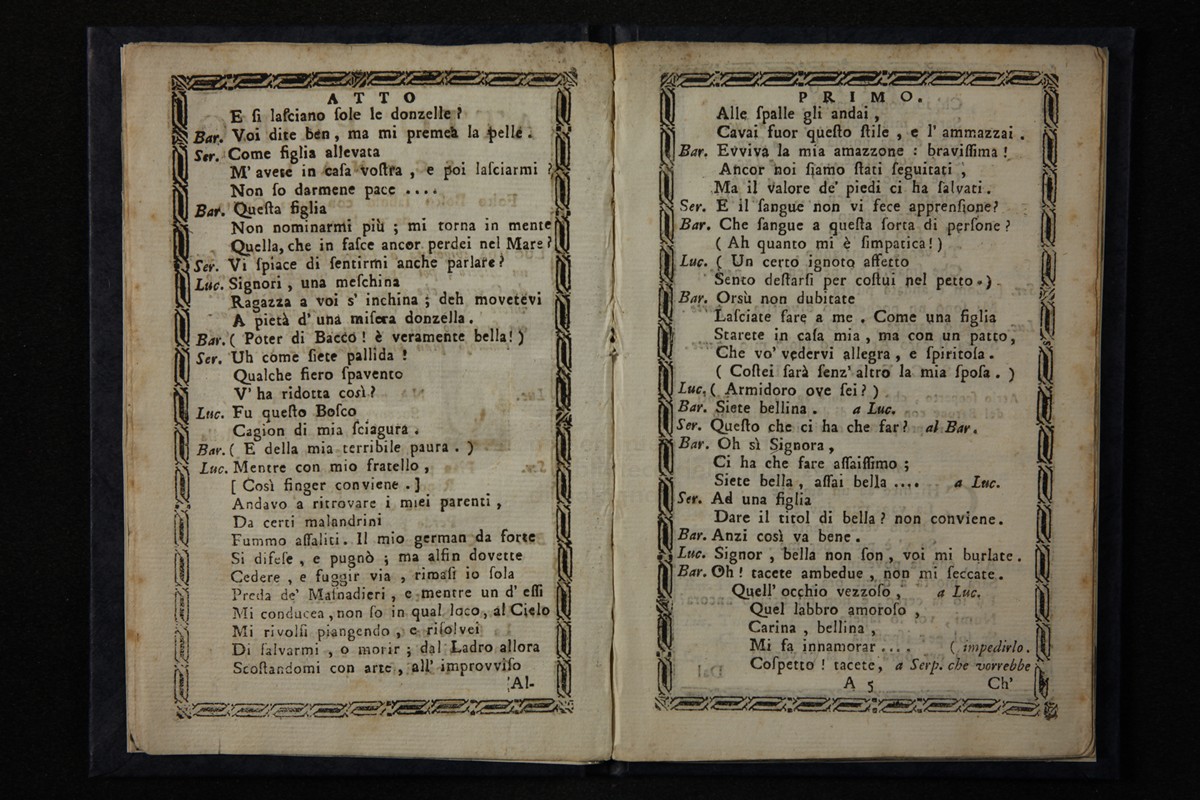 ATTO
E ſi laſciano ſole le donzelle?
Bar. Voi dite ben, ma mi premea la pelle.
Ser. Come figlia allevata
M' avete in caſa voſtra, e poi laſciarmi?
Non ſo darmene pace ....
Bar. Queſta figlia
Non nominarmi più; mi torna in mente
Quella, che in faſce ancor perdei nel Mare?
Ser. Vi ſpiace di ſentirmi anche parlare?
Luc. Signori, una meſchina
Ragazza a voi s' inchina; deh movetevi
A pietà d' una miſera donzella.
Bar. ( Poter di Bacco! è veramente bella! )
Ser. Uh come ſiete pallida!
Qualche fiero ſpavento
V' ha ridotta così?
Luc. Fu queſto Boſco
Cagion di mia ſciagura.
Bar. ( E della mia terribile paura. )
Luc. Mentre con mio fratello,
[ Così finger conviene. ]
Andavo a ritrovare i miei parenti,
Da certi malandrini
Fummo aſſaliti. Il mio german da forte
Si difeſe, e pugnò; ma alfin dovette
Cedere, e fuggir via, rimaſi io ſola
Preda de' Maſnadieri, e mentre un d' eſſi
Mi conducea, non ſo in qual loco, al Cielo
Mi rivolſi piangendo, e riſolvei
Di ſalvarmi, o morir; dal Ladro allora
Scoſtandomi con arte, all' improvviſo
Al-
PRIMO.
Alle ſpalle gli andai,
Cavai fuor queſto ſtile, e l' ammazzai.
Bar. Evviva la mia amazzone: braviſſima!
Ancor noi ſiamo ſtati ſeguitati,
Ma il valore de' piedi ci ha ſalvati.
Ser. E il ſangue non vi fece apprenſione?
Bar. Che ſangue a queſta ſorta di perſone?
( Ah quanto mi è ſimpatica! )
Luc. ( Un certo ignoto affetto
Sento deſtarſi per coſtui nel petto. )
Bar. Orsù non dubitate
Laſciate fare a me. Come una figlia
Starete in caſa mia, ma con un patto,
Che vo' vedervi allegra, e ſpiritoſa.
( Coſtei ſarà ſenz' altro la mia ſpoſa. )
Luc. ( Armidoro ove ſei? )
Bar. Siete bellina. a Luc.
Ser. Queſto che ci ha che far? al Bar.
Bar. Oh sì Signora,
Ci ha che fare aſſaiſſimo;
Siete bella, aſſai bella .... a Luc.
Ser. Ad una figlia
Dare il titol di bella? non conviene.
Bar. Anzi così va bene.
Luc. Signor, bella non ſon, voi mi burlate.
Bar. Oh! tacete ambedue, non mi ſeccate.
Quell' occhio vezzoſo, a Luc.
Quel labbro amoroſo,
Carina, bellina,
Mi fa innamorar .... ( impedirlo.
Coſpetto! tacete, a Serp. che vorrebbe
A 5 Ch'